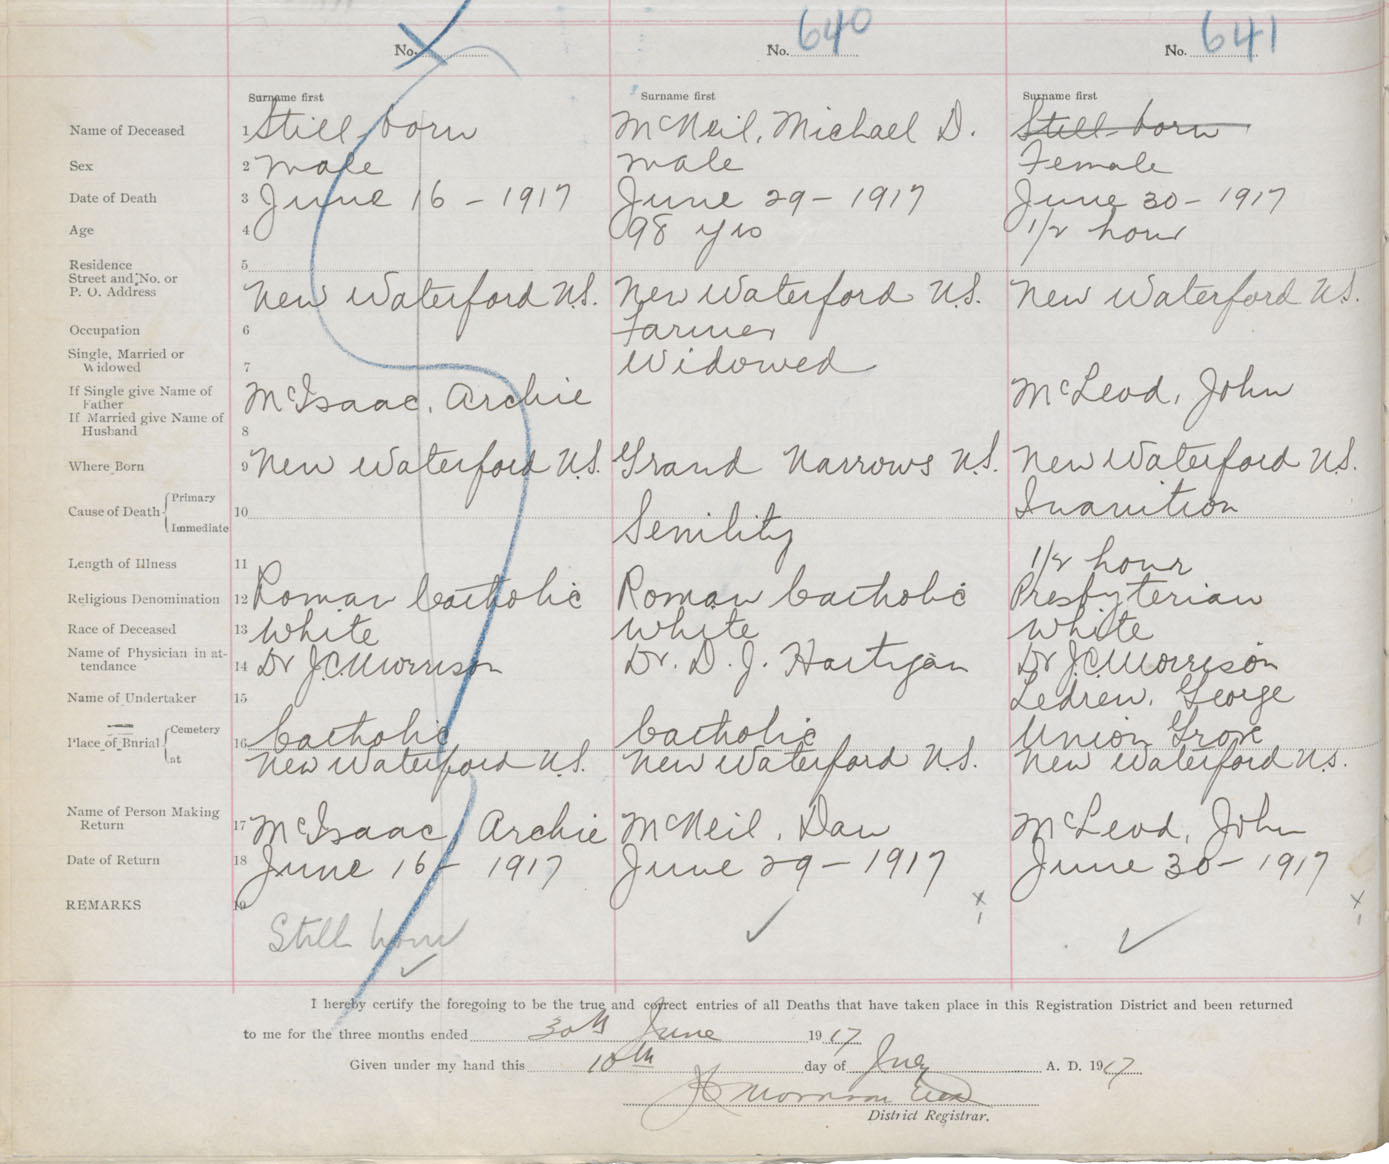 No. No. 640 No. 641
Surname first Surname first Surname first
Name of Deceased 1 Still-born McNeil, Michael D. Still-born
Sex 2 Male Male Female
Date of Death 3 June 16 - 1917 June 29 - 1917 June 30 - 1917
Age 4 98 yrs 1/2 hour
Residence 5
Street and No. or
P. O. Address New Waterford N.S. New Waterford N.S. New Waterford N.S.
Occupation 6 Farmer
Single, Married or
Widowed 7 Widowed
If Single give Name of
Father McIsaac, Archie McLeod, John
If Married give Name of
Husband 8
Where Born 9 New Waterford N.S. Grand Narrows N.S. New Waterford N.S.
Cause of Death Primary 10 Inanition
Immediate Senility
Length of Illness 11 1/2 hour
Religious Denomination 12 Roman Catholic Roman Catholic Presbyterian
Race of Deceased 13 White White White
Name of Physician in at-
tendance 14 Dr J.C. Morrison Dr. D. J. Hartigan Dr J.C. Morrison
Name of Undertaker 15 Ledrew, George
Place of Burial Cemetery 16 Catholic Catholic Union Grove
at New Waterford N.S. New Waterford N.S. New Waterford N.S.
Name of Person Making
Return 17 McIsaac, Archie McNeil, Dan McLeod, John
Date of Return 18 June 16 - 1917 June 29 - 1917 June 30 - 1917
REMARKS 19
Still born
I hereby certify the foregoing to be the true and correct entries of all Deaths that have taken place in this Registration District and been returned
to me for the three months ended 30th June 1917
Given under my hand this 10th day of July A. D. 1917
Morrison
District Registrar.